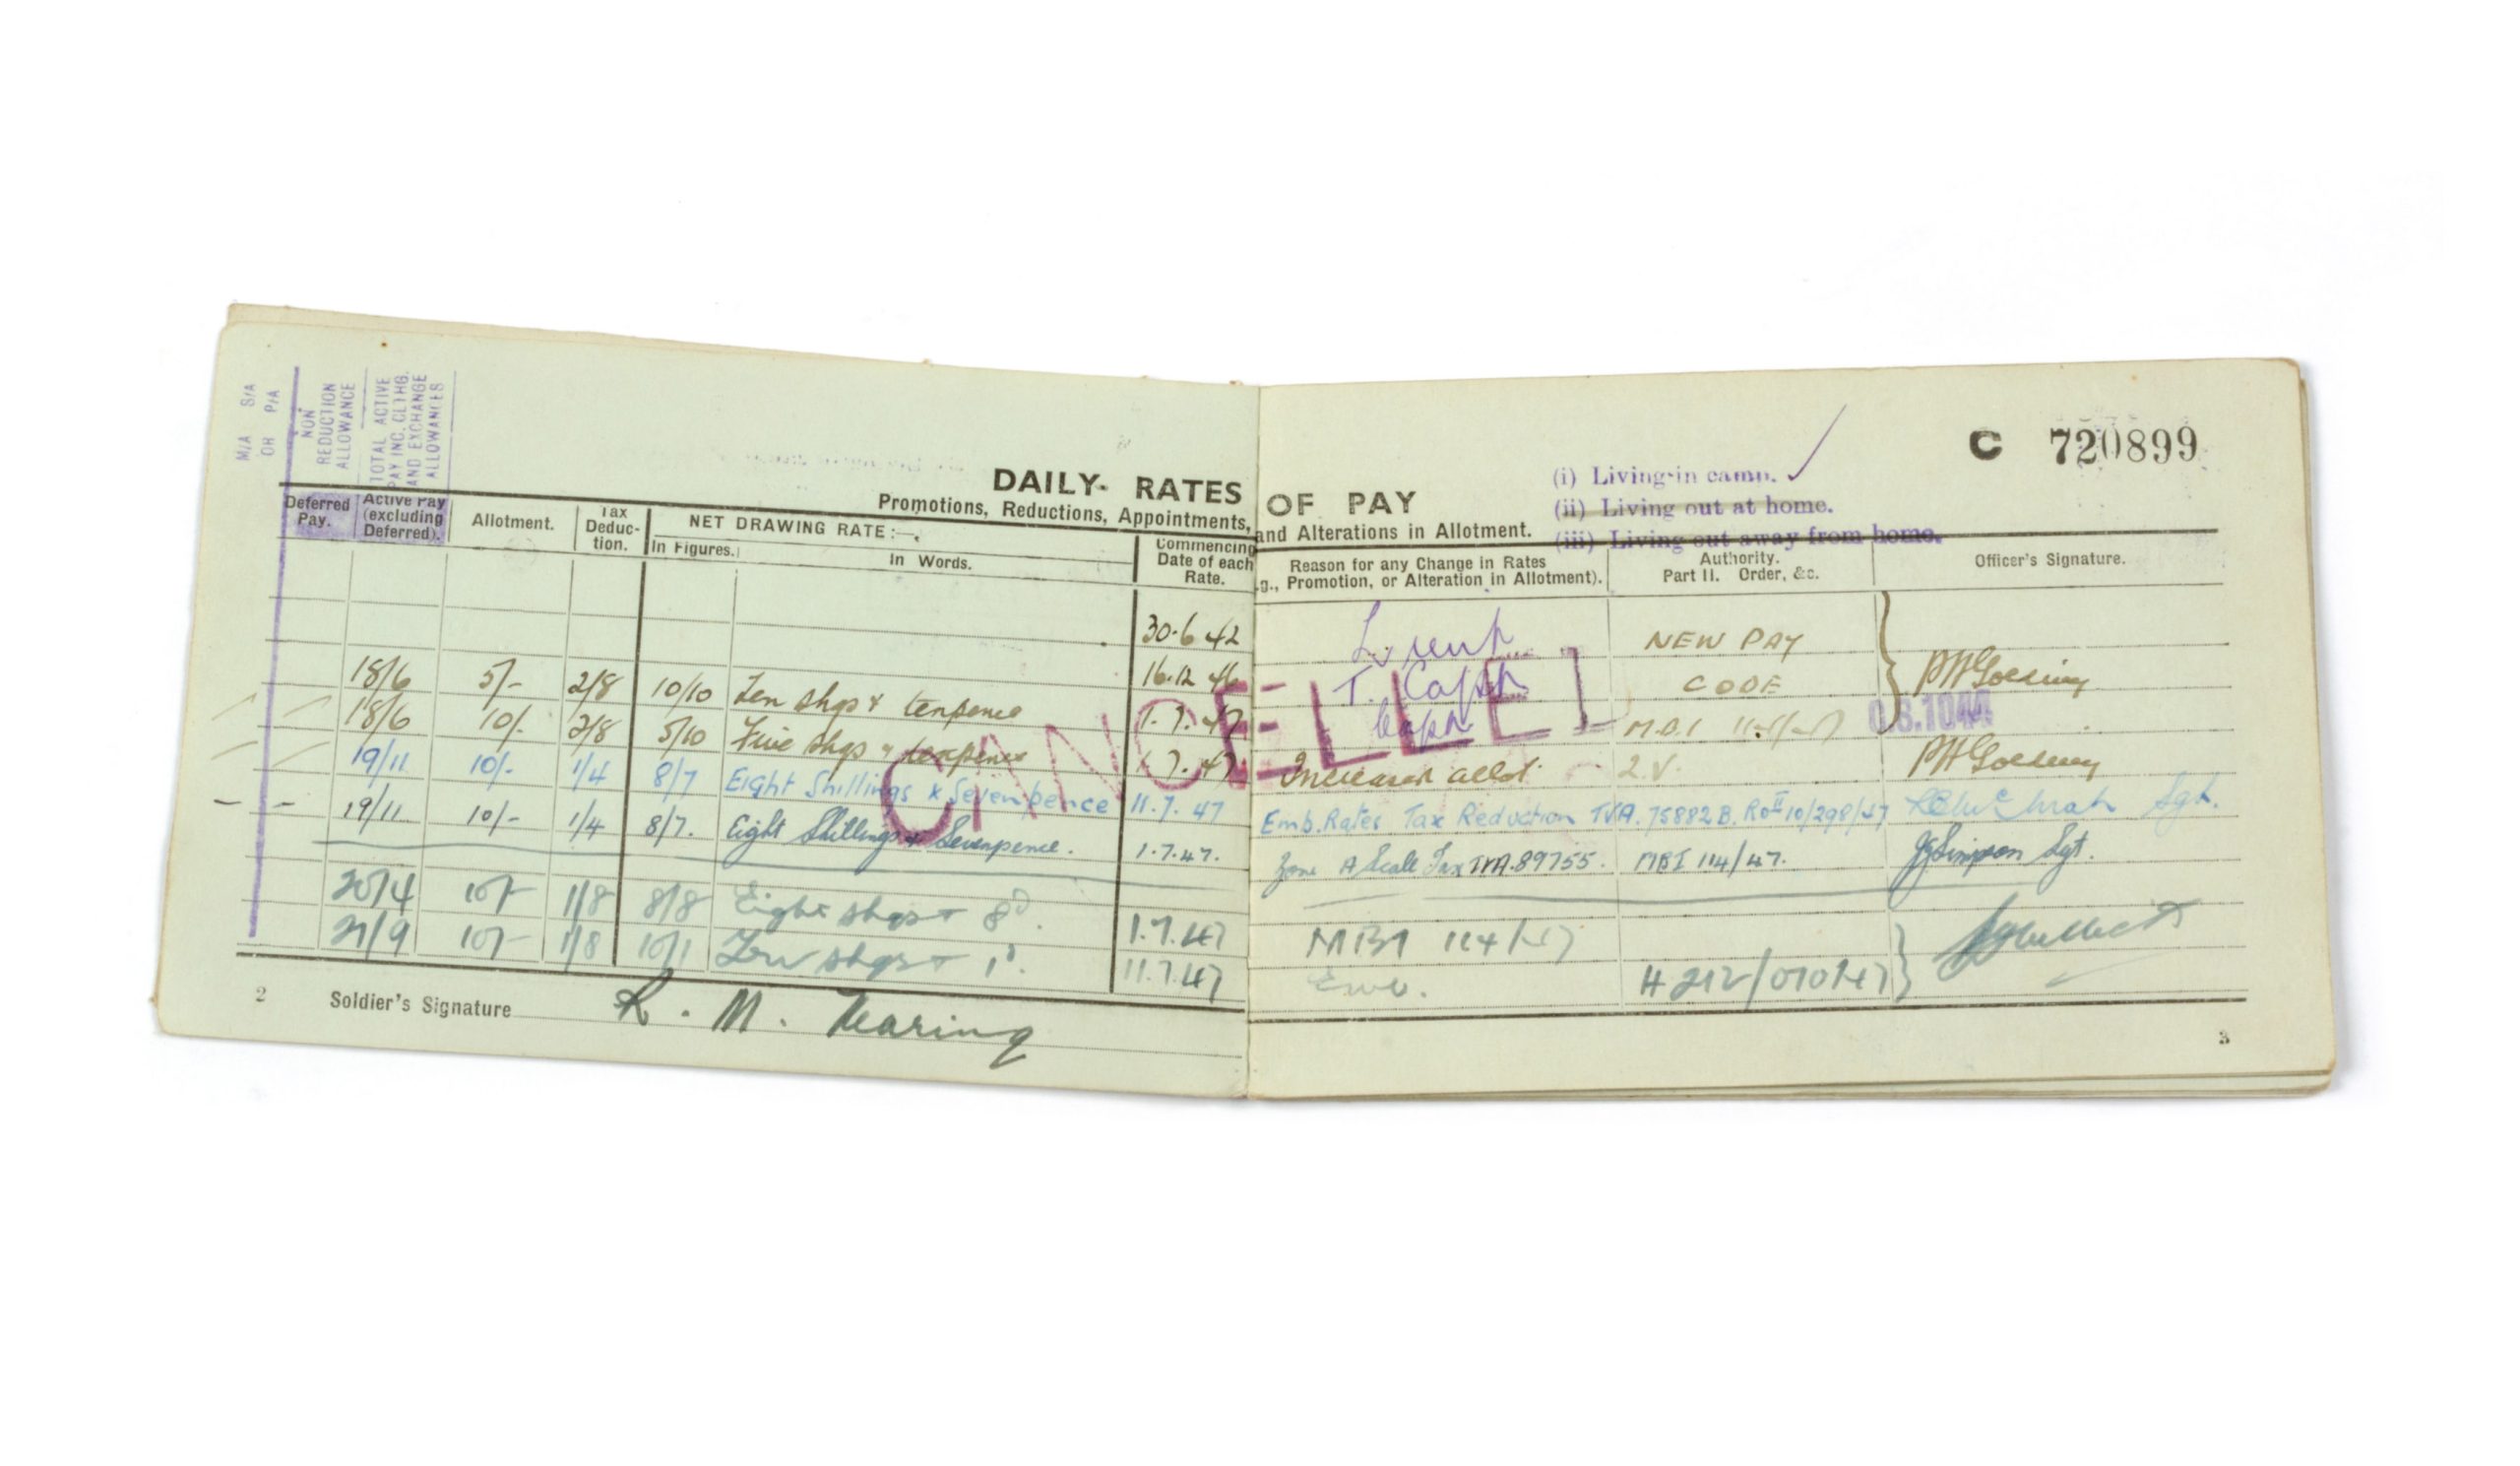 M/A S/A
OR P/A
NON
REDUCTION
ALLOWANCE
TOTAL ACTIVE
PAY INC. CLTHG.
AND EXCHANGE
ALLOWANCES
C 720899
(i) Living-in camp.
(ii) Living out at home.
(iii) Living out away from home.
DAILY RATES OF PAY
Promotions, Reductions, Appointments, and Alterations in Allotment.
Deferred Pay.
Active Pay (excluding Deferred).
Allotment.
Tax Deduc-tion.
NET DRAWING RATE:—
In Figures.
In Words.
Commencing Date of each Rate.
Reason for any Change in Rates
g., Promotion, or Alteration in Allotment).
Authority.
Part II. Order, &c.
Officer's Signature.
30.6.42 Lieut NEW PAY
16.12.46 T. Capt CODE
18/6 5/- 2/8 10/10 Ten shgs & tenpence 1.7.47 Capt
18/6 10/- 2/8 5/10 Five shgs & tenpence 1.7.47 Increased allot 2.V.
19/11 10/- 1/4 8/7 Eight Shillings & Sevenpence 11.7.47 Emb. Rates Tax Reduction TVA. 75882B. Ro II 10/298/47 Sgt.
19/11 10/- 1/4 8/7. Eight Shillings & Sevenpence. 1.7.47. Zone A Scale Tax TVA.89755. MBI 114/47. Simpson Sgt.
20/4 10/- 1/8 8/8 Eight shgs + 8d. 1.7.47 MBI 114/47
21/9 10/- 1/8 10/1 Ten shgs + 1d. 11.7.47
CANCELLED
2 Soldier's Signature R. M. Nearing
3